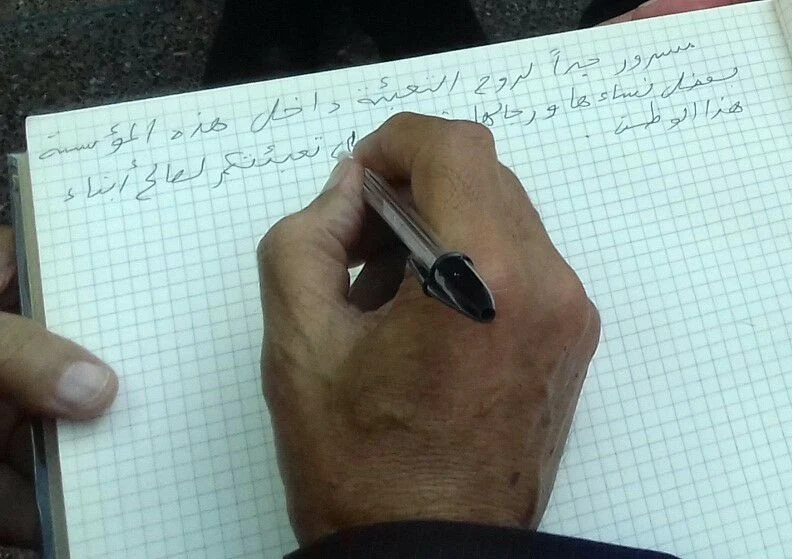 مسرور جداً لروح التعبئة داخل هذه المؤسسة
بفضل نساءها ورجالها تعبئتكم لصالح أبناء
هذا الوطن .